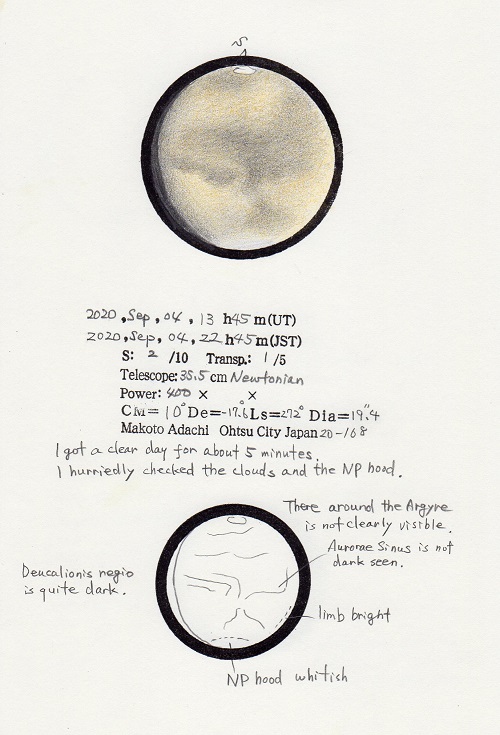 S
2020, Sep, 04, 13 h45 m(UT)
2020, Sep, 04, 22 h45 m(JST)
S: 2 /10 Transp.: 1 /5
Telescope: 35.5 cm Newtonian
Power: 400 × ×
CM= 10° De=-17.6° Ls=272° Dia=19.4"
Makoto Adachi Ohtsu City Japan 20-168
I got a clear day for about 5 minutes.
I hurriedly checked the clouds and the NP hood.
There around the Argyre
is not clearly visible.
Aurorae Sinus is not
dark seen.
Deucalionis regio
is quite dark.
limb bright
NP hood whitish